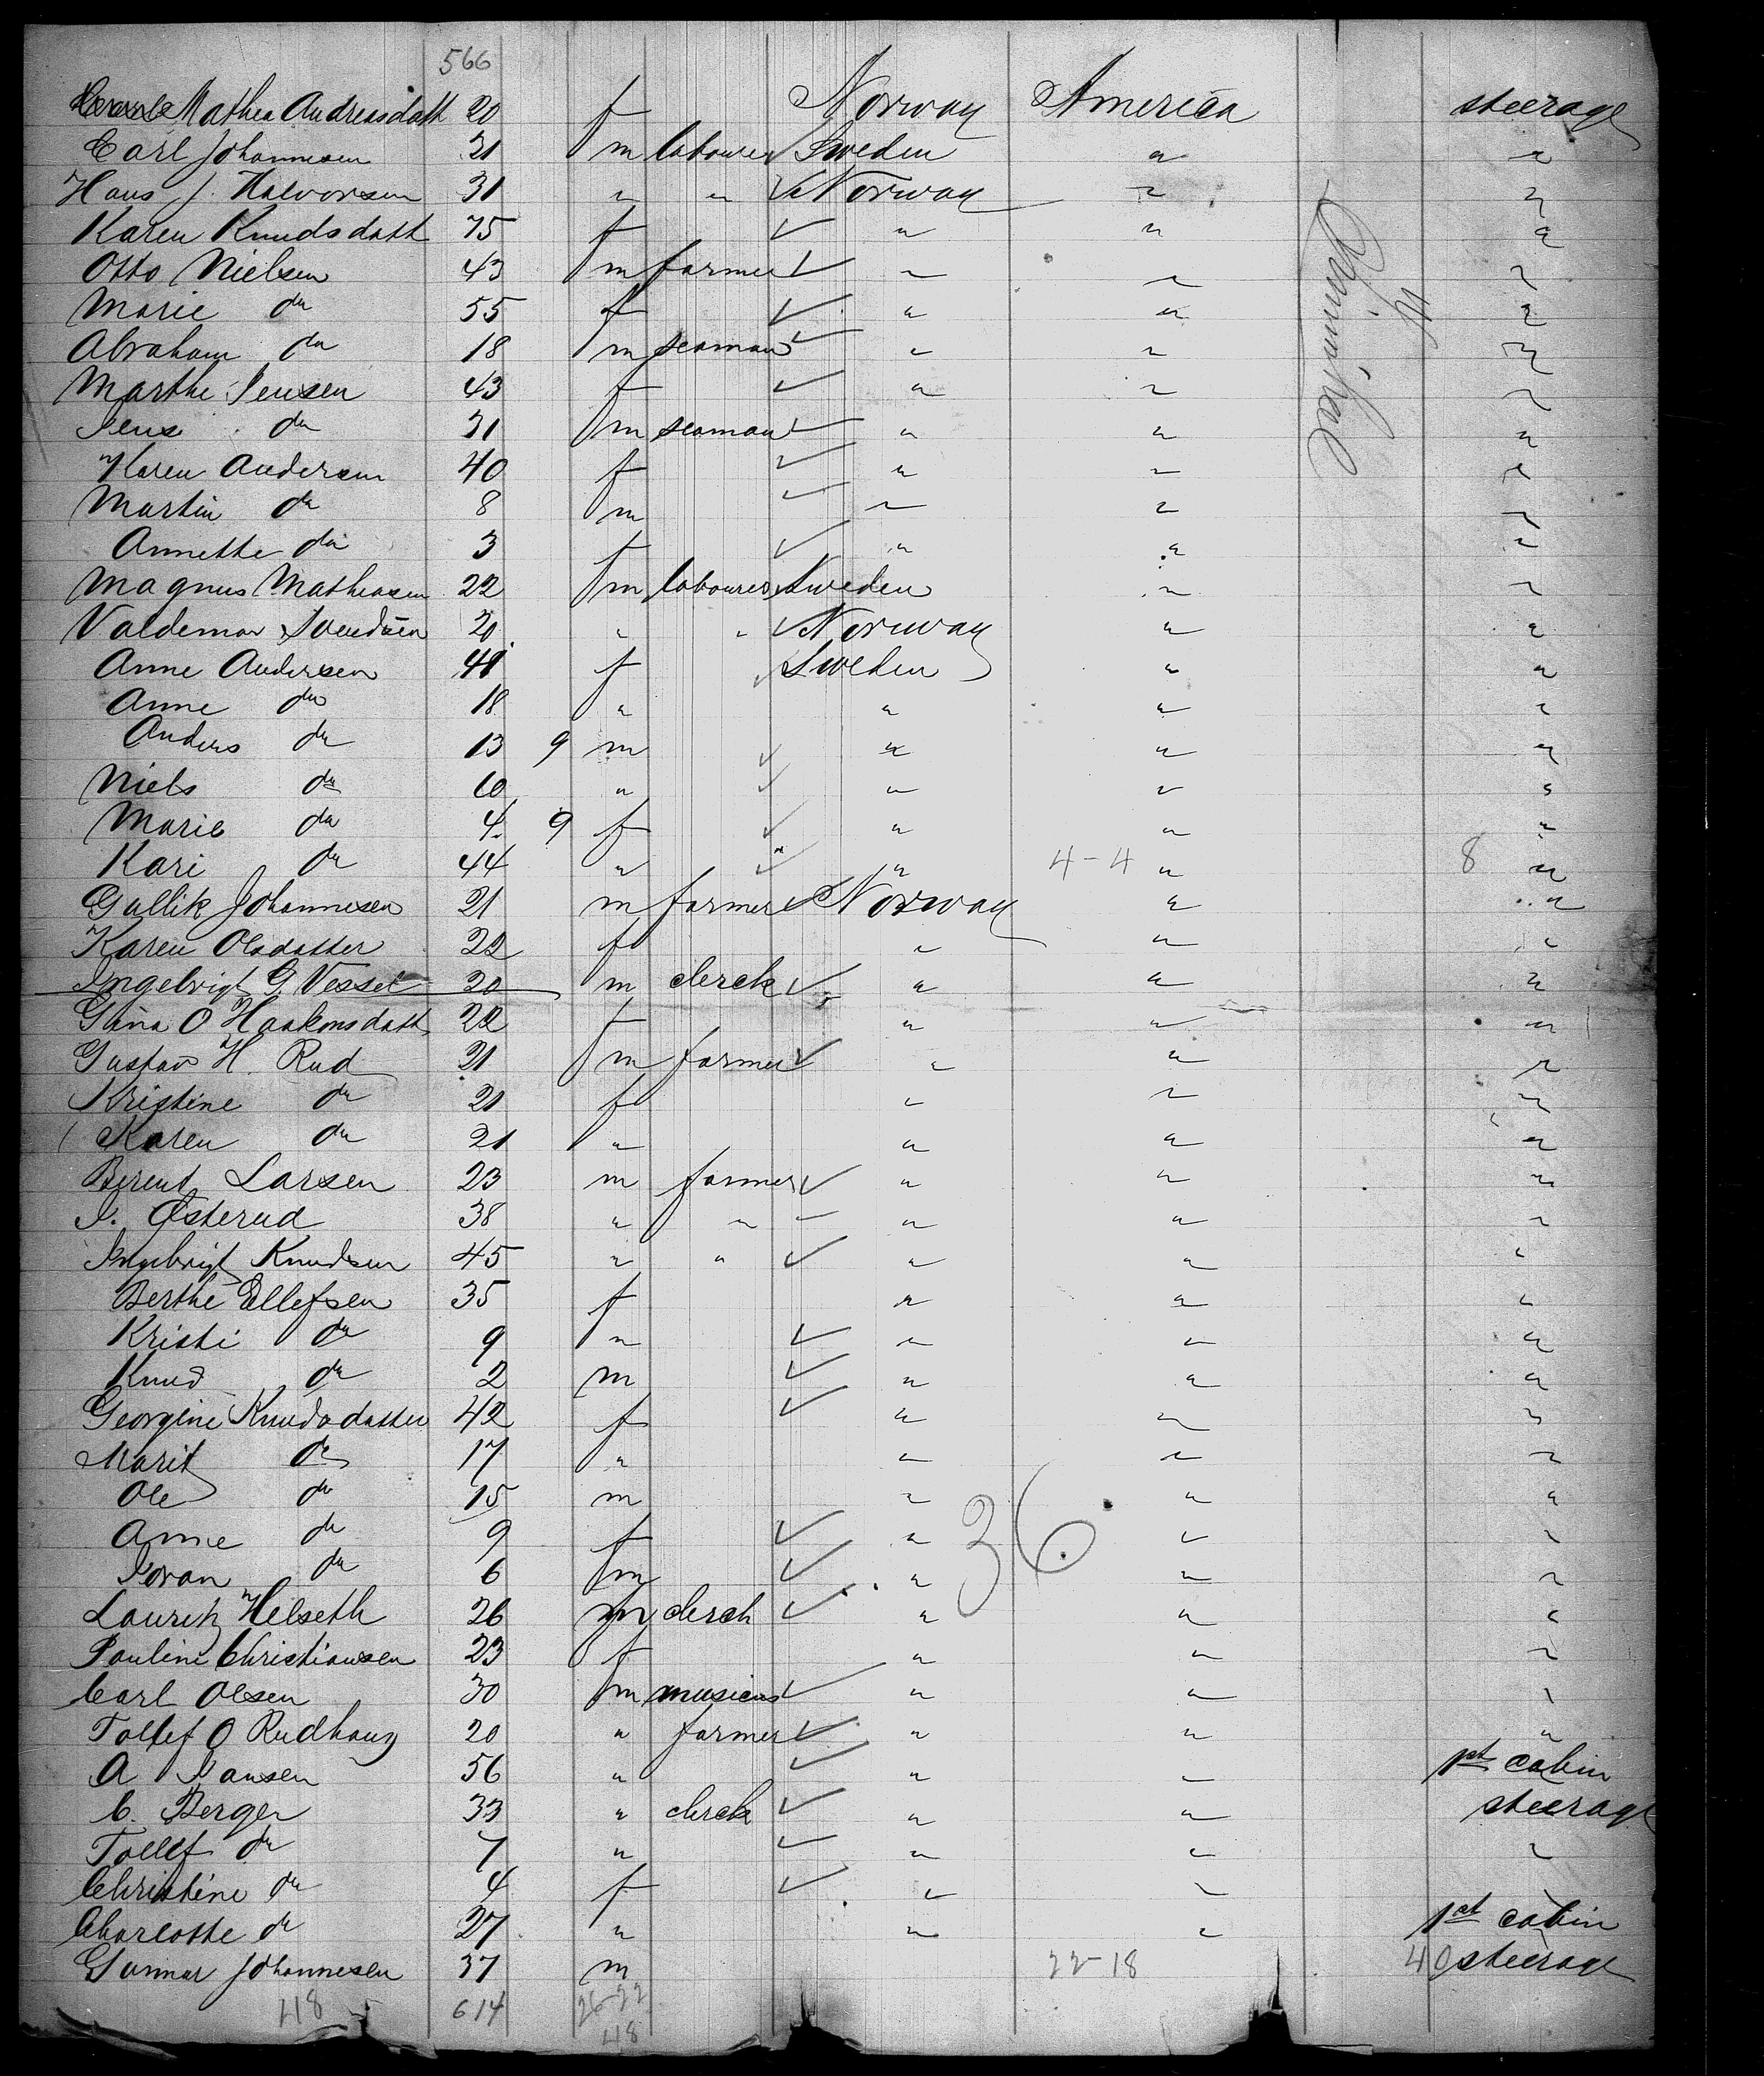 566
Mathea Andreasdatt 20 f Norway America steerage
Carl Johannesen 21 m labourer Sweden " "
Hans J. Halvorsen 31 " " Norway " "
Karen Knudsdatt 75 f " " "
Otto Nielsen 43 m farmer " " "
Marie do 55 f " " "
Abraham do 18 m seaman " " "
Marthe Jensen 43 f " " "
Jens do 31 m seaman " " "
Karen Andersen 40 f " " "
Martin do 8 m " " "
Annette do 3 f " " "
Magnus Matheasen 22 m labourer Sweden " "
Valdemar Svendsen 20 " " Norway " "
Anne Andersen 41 f Sweden " "
Anne do 18 " " " "
Anders do 13 9 m " " "
Niels do 10 " " " "
Marie do 4 9 f " " "
Kari do 44 " " 4-4 " 8 "
Gullik Johannesen 21 m farmer Norway " "
Karen Olsdatter 22 f " " "
Ingebrigt G. Vesset 20 m clerck " " "
Gina O Haakonsdatt 22 f " " "
Gustav H. Rud 21 m farmer " " "
Kristine do 21 f " " "
Karen do 21 " " " "
Berent Larsen 23 m farmer " " "
I. Østerud 38 " " " " "
Ingebrigt Knudsen 45 " " " " "
Berthe Ellefsen 35 f " " "
Kristi do 9 " " " "
Knud do 2 m " " "
Georgine Knudsdatter 42 f " " "
Marit do 17 " " " "
Ole do 15 m " " "
Anne do 9 f " 36 " "
Ioran do 6 m " " "
Lauritz Helseth 26 m clerck " " "
Pauline Christiansen 23 f " " "
Carl Olsen 30 m " " "
Tollef O Rudhaug 20 " farmer " " "
A Hansen 56 " " " 1st cabin
C. Berger 33 " clerck " " steerage
Tollef do 7 " " " "
Christine do 4 f " " "
Charlotte do 27 " " " 1st cabin
Gunnar Johannesen 37 m 22-18 40 steerage
48 614 26-22
48